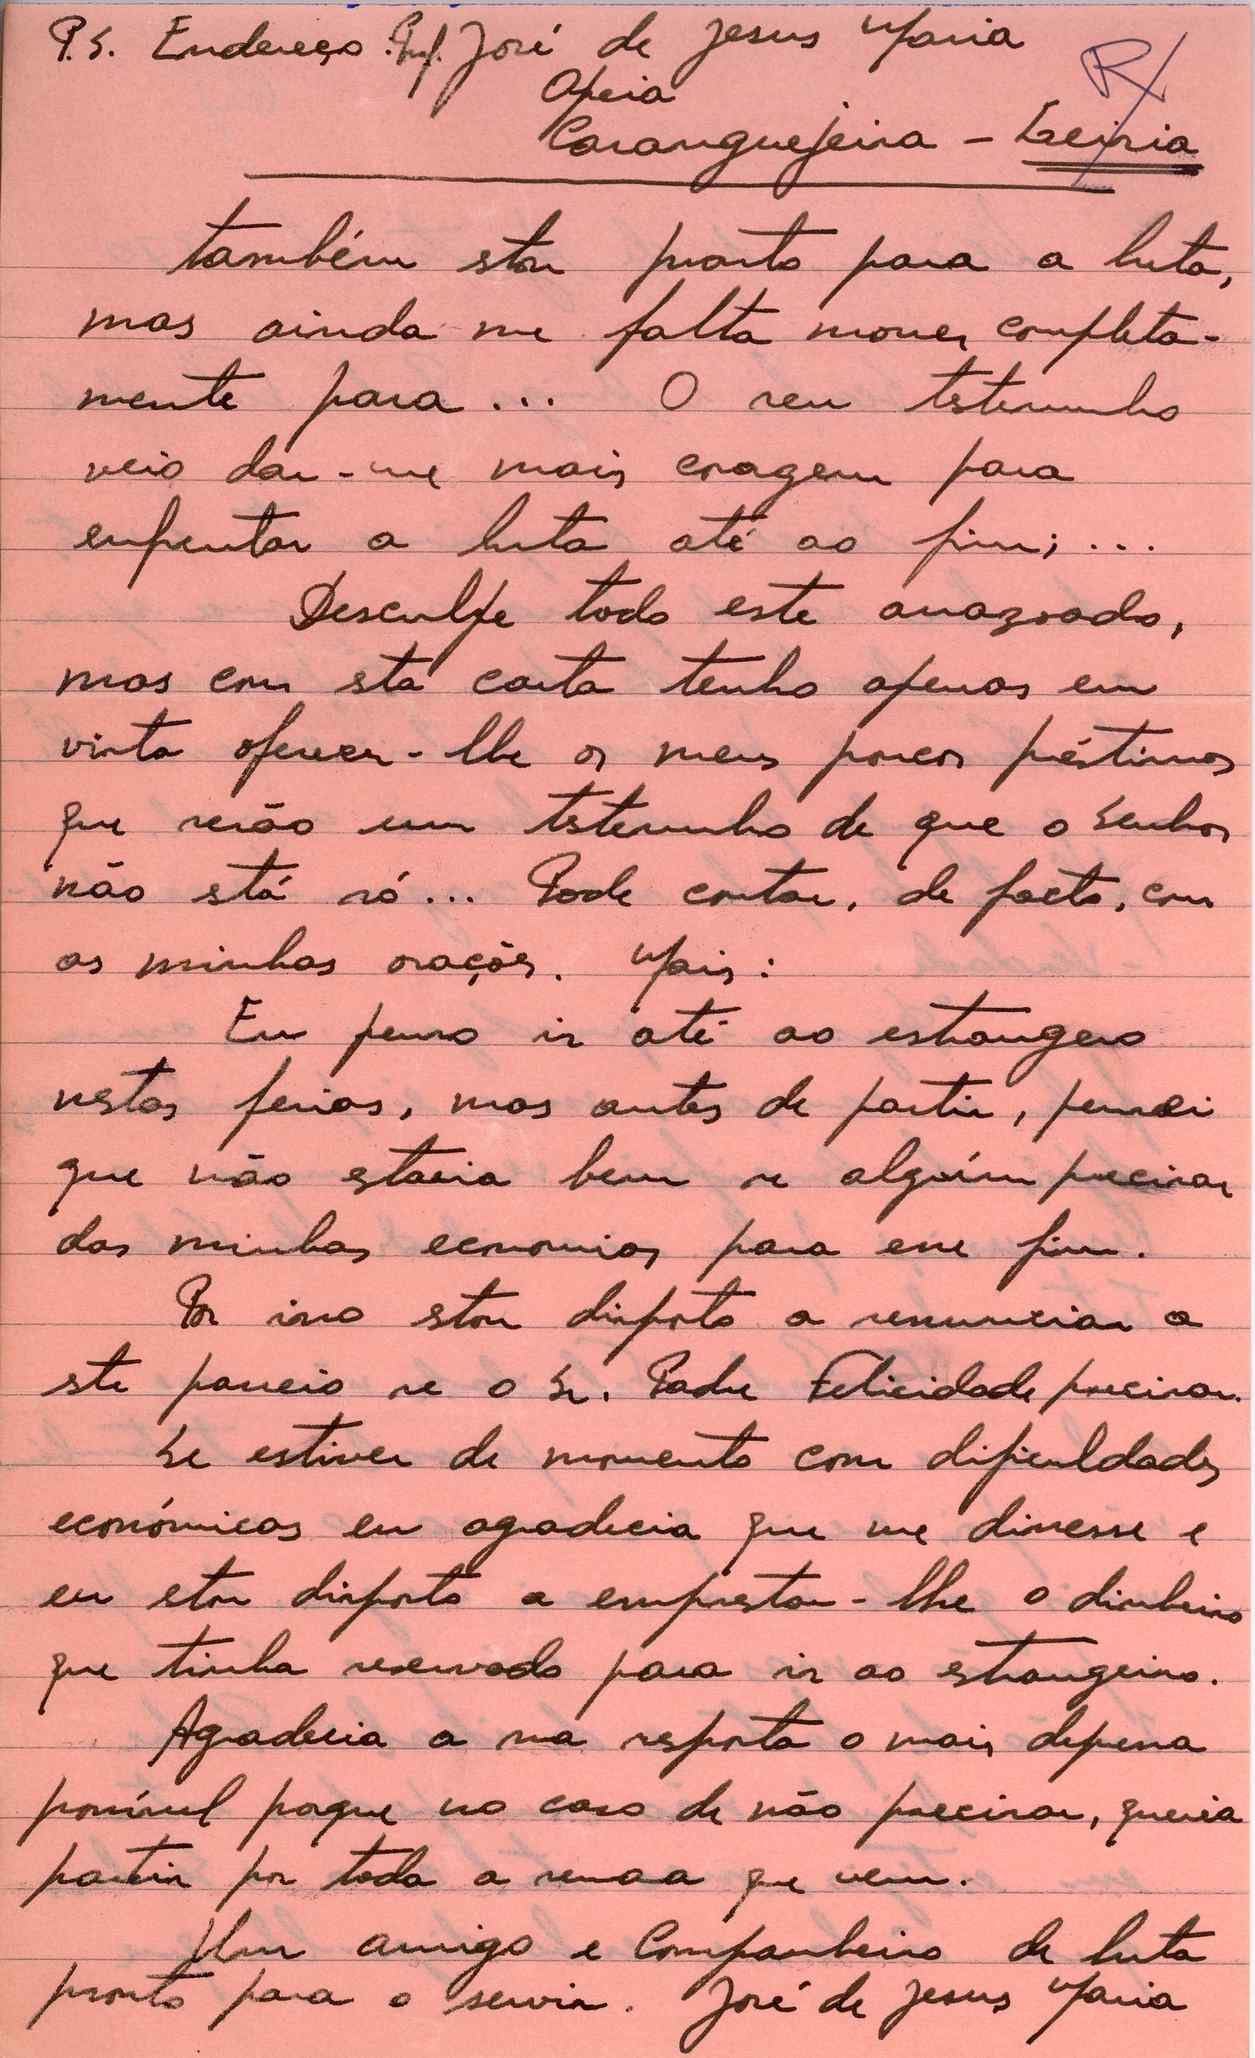 P.S. Endereço: Prof. José de Jesus Maria
Opeia
Caranguejeira - Leiria
R/
também stou pronto para a luta,
mas ainda me falta morrer completa-
mente para... O seu testemunho
veio dar-me mais coragem para
enfrentar a luta até ao fim; ...
Desculpe todo este arrazoado,
mas com sta carta tenho apenas em
vista oferecer-lhe os meus poucos préstimos
que serão um testemunho de que o Senhor
não stá só... Pode contar, de facto, com
as minhas orações. Mais:
Eu penso ir até ao estrangeiro
nestas ferias, mas antes de partir, pensei
que não estaria bem se alguém precisar
das minhas economias para esse fim.
Por isso stou disposto a renunciar a
ste passeio se o Sr. Padre Felicidade precisar.
Se estiver de momento com dificuldades
económicas eu agradecia que me dissesse e
eu stou disposto a emprestar-lhe o dinheiro
que tinha reservado para ir ao estrangeiro.
Agradecia a sua resposta o mais depressa
possível porque no caso de não precisar, queria
partir por toda a semaa que vem.
Um amigo e Companheiro de luta
pronto para o servir. José de Jesus Maria